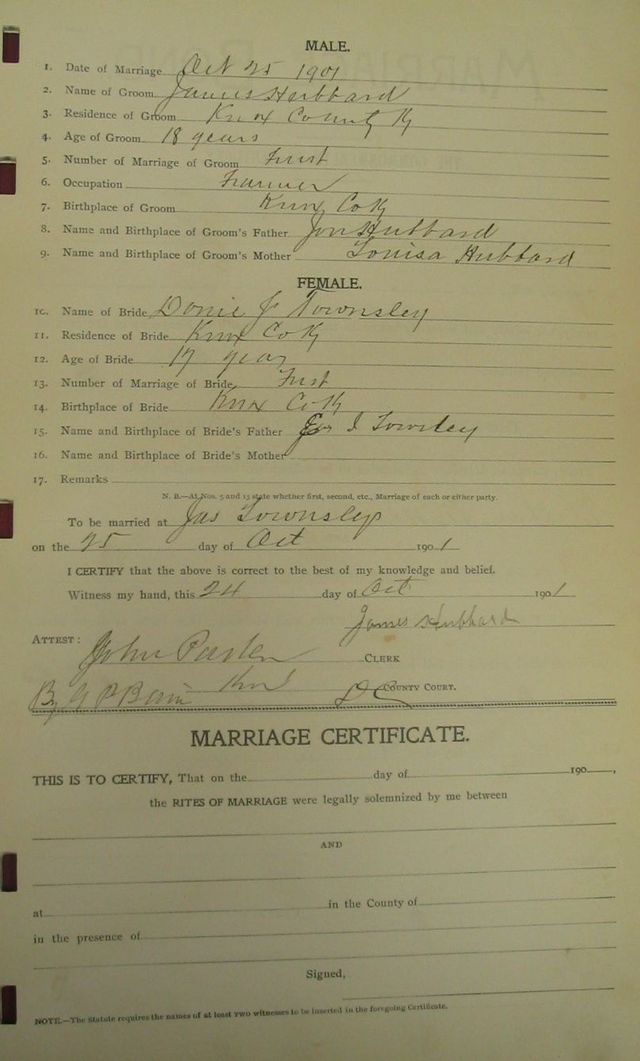 MALE.
1. Date of Marriage Oct 25 1901
2. Name of Groom James Hubbard
3. Residence of Groom Knox County Ky
4. Age of Groom 18 years
5. Number of Marriage of Groom First
6. Occupation Farmer
7. Birthplace of Groom Knox Co Ky
8. Name and Birthplace of Groom's Father Jon Hubbard
9. Name and Birthplace of Groom's Mother Louisa Hubbard
FEMALE.
10. Name of Bride Donie J Townsley
11. Residence of Bride Knox Co Ky
12. Age of Bride 17 year
13. Number of Marriage of Bride First
14. Birthplace of Bride Knox Co Ky
15. Name and Birthplace of Bride's Father J Townsley
16. Name and Birthplace of Bride's Mother
17. Remarks
N. B.—At Nos. 5 and 13 state whether first, second, etc., Marriage of each or either party.
To be married at Jas Townsley
on the 25 day of Oct 1901
I CERTIFY that the above is correct to the best of my knowledge and belief.
Witness my hand, this 24 day of Oct 1901
James Hubbard
ATTEST: John CLERK
By G P Bain Knox DC COUNTY COURT.
MARRIAGE CERTIFICATE.
THIS IS TO CERTIFY, That on the day of 190 ,
the RITES OF MARRIAGE were legally solemnized by me between
AND
at in the County of
in the presence of
Signed,
NOTE.—The Statute requires the names of at least two witnesses to be inserted in the foregoing Certificate.